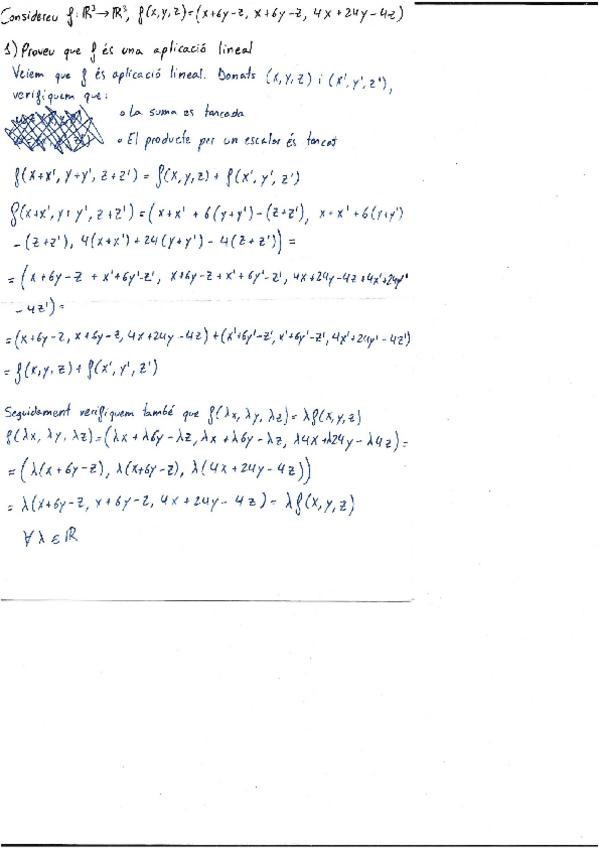 Considereu f: ℝ³→ℝ³, f(x,y,z)=(x+6y-z, x+6y-z, 4x+24y-4z)
1) Proveu que f és una aplicació lineal
Veiem que f és aplicació lineal. Donats (x,y,z) i (x',y',z'),
verifiquem que:
• La suma es tancada
• El producte per un escalar és tancat
f(x+x', y+y', z+z') = f(x,y,z) + f(x', y', z')
f(x+x', y+y', z+z') = (x+x' + 6(y+y') - (z+z'), x+x' + 6(y+y')
- (z+z'), 4(x+x') + 24(y+y') - 4(z+z')) =
= (x+6y-z + x'+6y'-z', x+6y-z + x'+6y'-z', 4x+24y-4z+4x'+24y'
- 4z') =
= (x+6y-z, x+6y-z, 4x+24y-4z) + (x'+6y'-z', x'+6y'-z', 4x'+24y'-4z')
= f(x,y,z) + f(x', y', z')
Seguidament verifiquem també que f(λx, λy, λz) = λf(x,y,z)
f(λx, λy, λz) = (λx + λ6y - λz, λx + λ6y - λz, λ4x + λ24y - λ4z) =
= (λ(x+6y-z), λ(x+6y-z), λ(4x+24y-4z))
= λ(x+6y-z, x+6y-z, 4x+24y-4z) = λf(x,y,z)
∀ λ ∈ ℝ